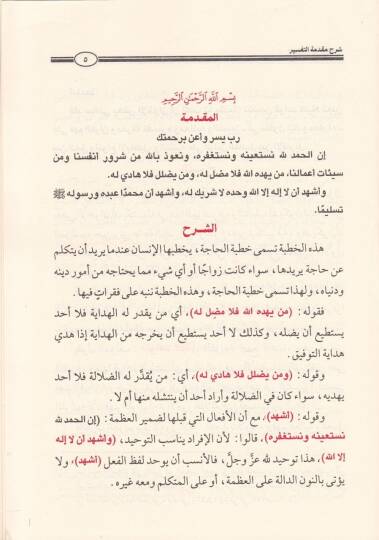 شرح مقدمة التفسير
٥
بِسْمِ اللَّهِ الرَّحْمَٰنِ الرَّحِيمِ
المقدمة
رب يسر وأعن برحمتك
إن الحمد لله نستعينه ونستغفره، ونعوذ بالله من شرور أنفسنا ومن
سيئات أعمالنا، من يهده الله فلا مضل له، ومن يضلل فلا هادي له.
وأشهد أن لا إله إلا الله وحده لا شريك له، وأشهد أن محمدًا عبده ورسوله ﷺ
تسليمًا.
الشرح
هذه الخطبة تسمى خطبة الحاجة، يخطبها الإنسان عندما يريد أن يتكلم
عن حاجة يريدها، سواء كانت زواجًا أو أي شيء مما يحتاجه من أمور دينه
ودنياه، ولهذا تسمى خطبة الحاجة، وهذه الخطبة ننبه على فقراتٍ فيها.
فقوله: (من يهده الله فلا مضل له)، أي من يقدر له الهداية فلا أحد
يستطيع أن يضله، وكذلك لا أحد يستطيع أن يخرجه من الهداية إذا هدي
هداية التوفيق.
وقوله: (ومن يضلل فلا هادي له)، أي: من يُقدَّر له الضلالة فلا أحد
يهديه، سواء كان في الضلالة وأراد أحد أن ينتشله منها أم لا.
وقوله: (أشهد)، مع أن الأفعال التي قبلها لضمير العظمة: (إن الحمد لله
نستعينه ونستغفره)، قالوا: لأن الإفراد يناسب التوحيد، (وأشهد أن لا إله
إلا الله)، هذا توحيد لله عزَّ وجلَّ، فالأنسب أن يوحد لفظ الفعل (أشهد)، ولا
يؤتى بالنون الدالة على العظمة، أو على المتكلم ومعه غيره.